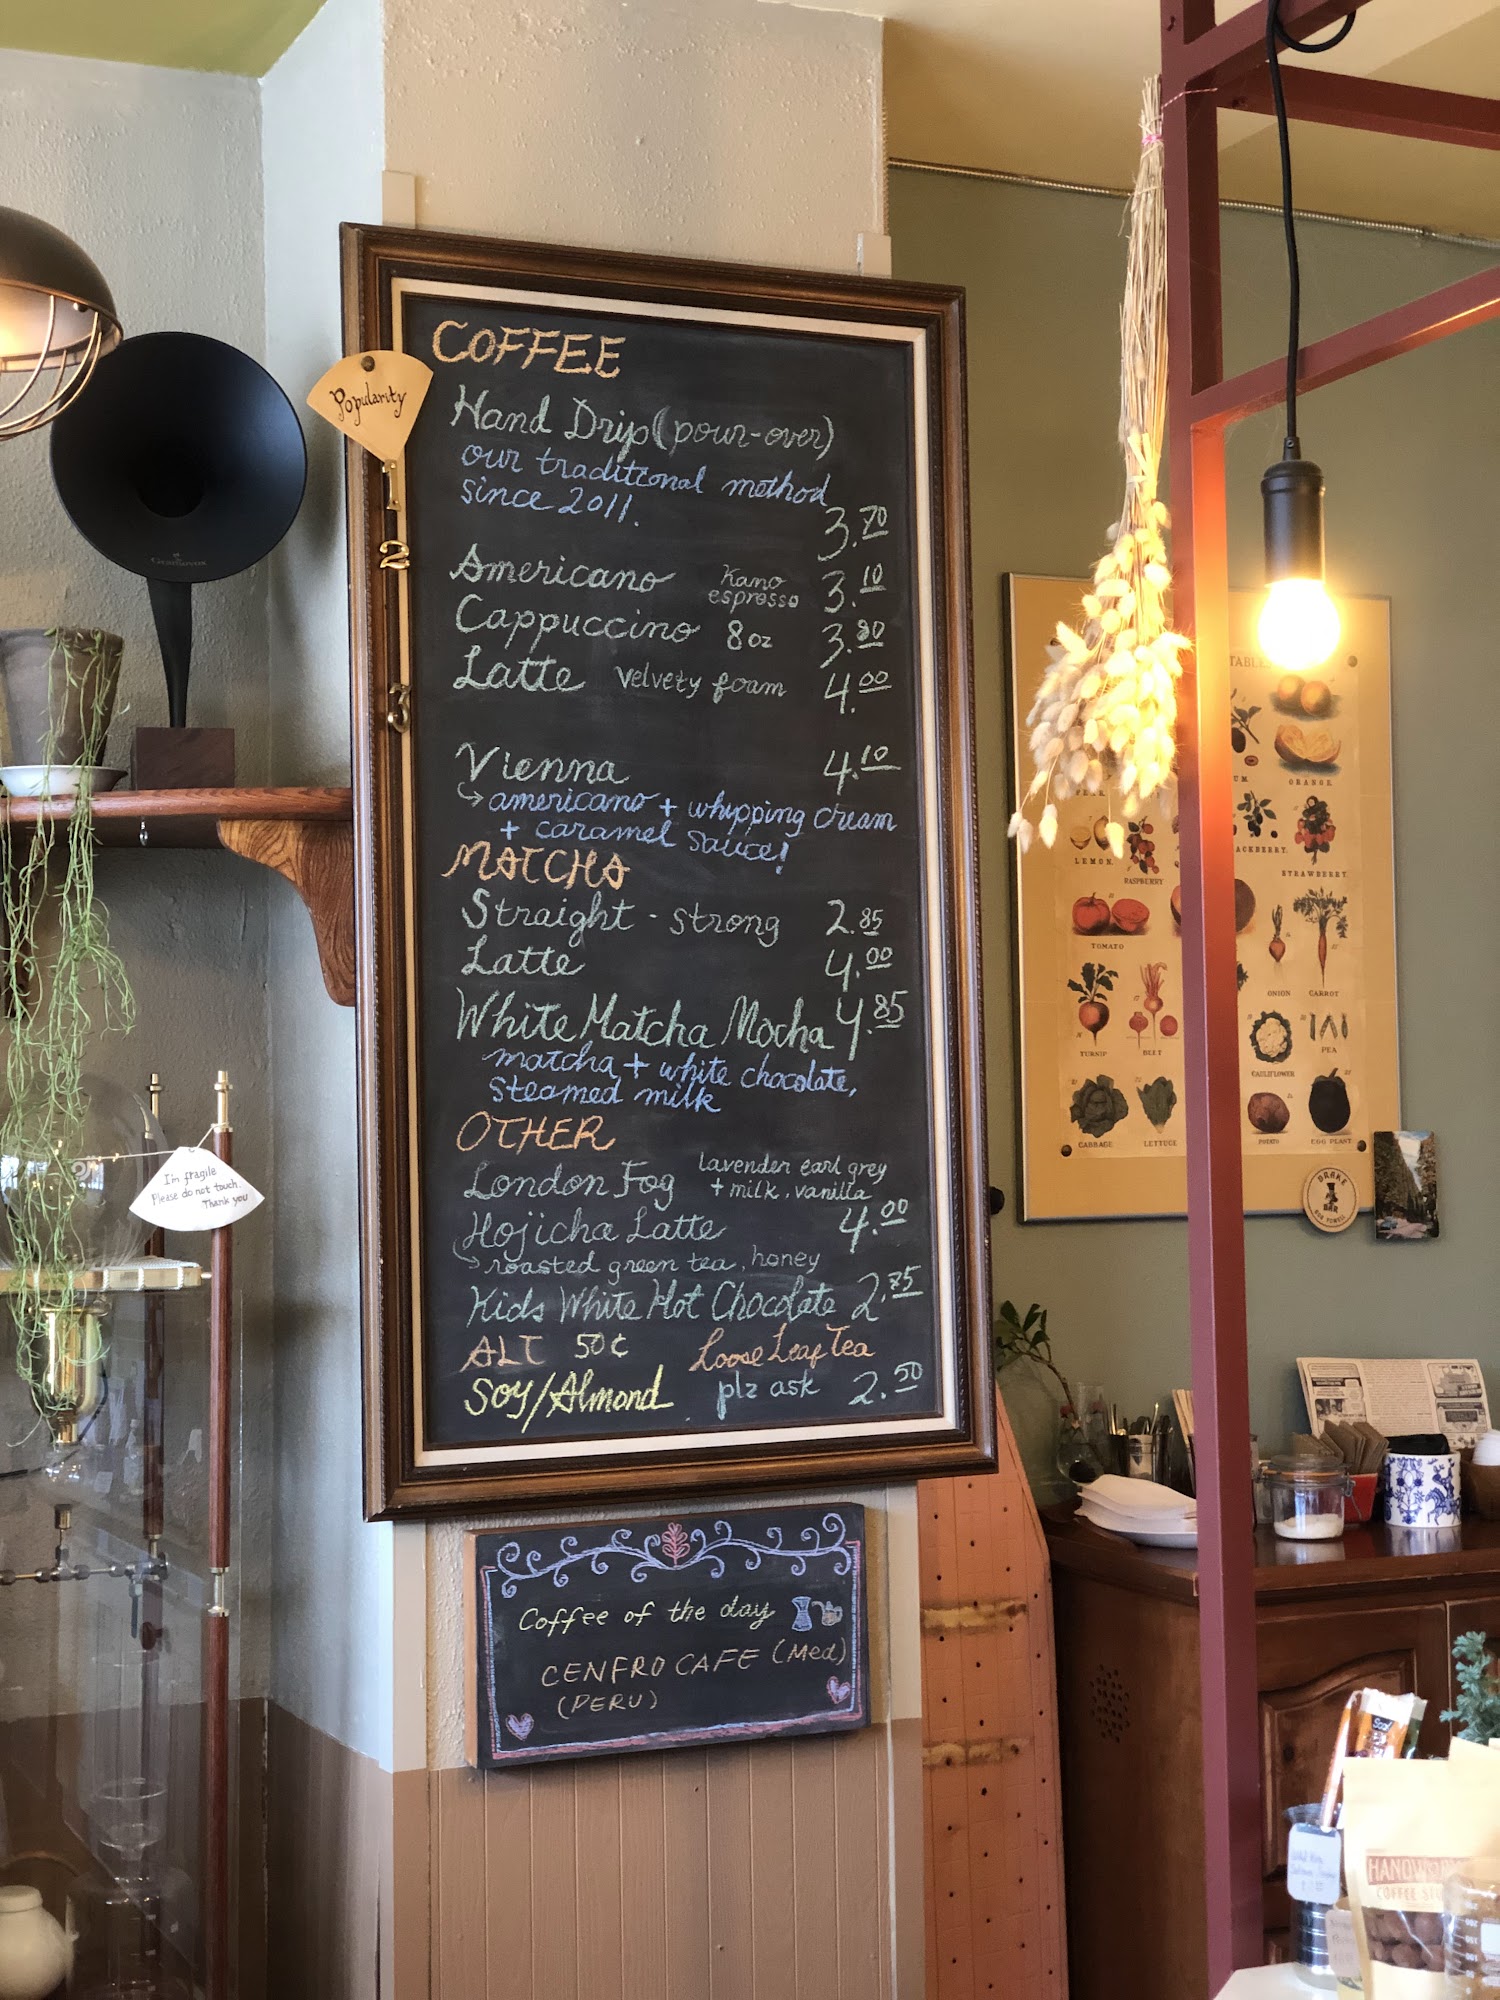 COFFEE
Popularity
Hand Drip (pour-over)
our traditional method
since 2011.
3.70
1
2
3
Americano Kano espresso 3.10
Cappuccino 8oz 3.80
Latte velvety foam 4.00
Vienna 4.10
americano + whipping cream
+ caramel sauce!
MATCHA
Straight - strong 2.85
Latte 4.00
White Matcha Mocha 4.85
matcha + white chocolate,
steamed milk
OTHER
London Fog lavender earl grey
+ milk, vanilla
Hojicha Latte 4.00
roasted green tea, honey
Kids White Hot Chocolate 2.75
ALT 50¢ Loose Leaf Tea
Soy/Almond plz ask 2.50
Coffee of the day
CENFRO CAFE (Med)
(PERU)
I'm fragile
Please do not touch.
Thank you
LEMON.
RASPBERRY
ORANGE.
STRAWBERRY.
TOMATO
ONION
CARROT
TURNIP
BEET
CAULIFLOWER
PEA
CABBAGE
LETTUCE
POTATO
EGG PLANT
COFFEE